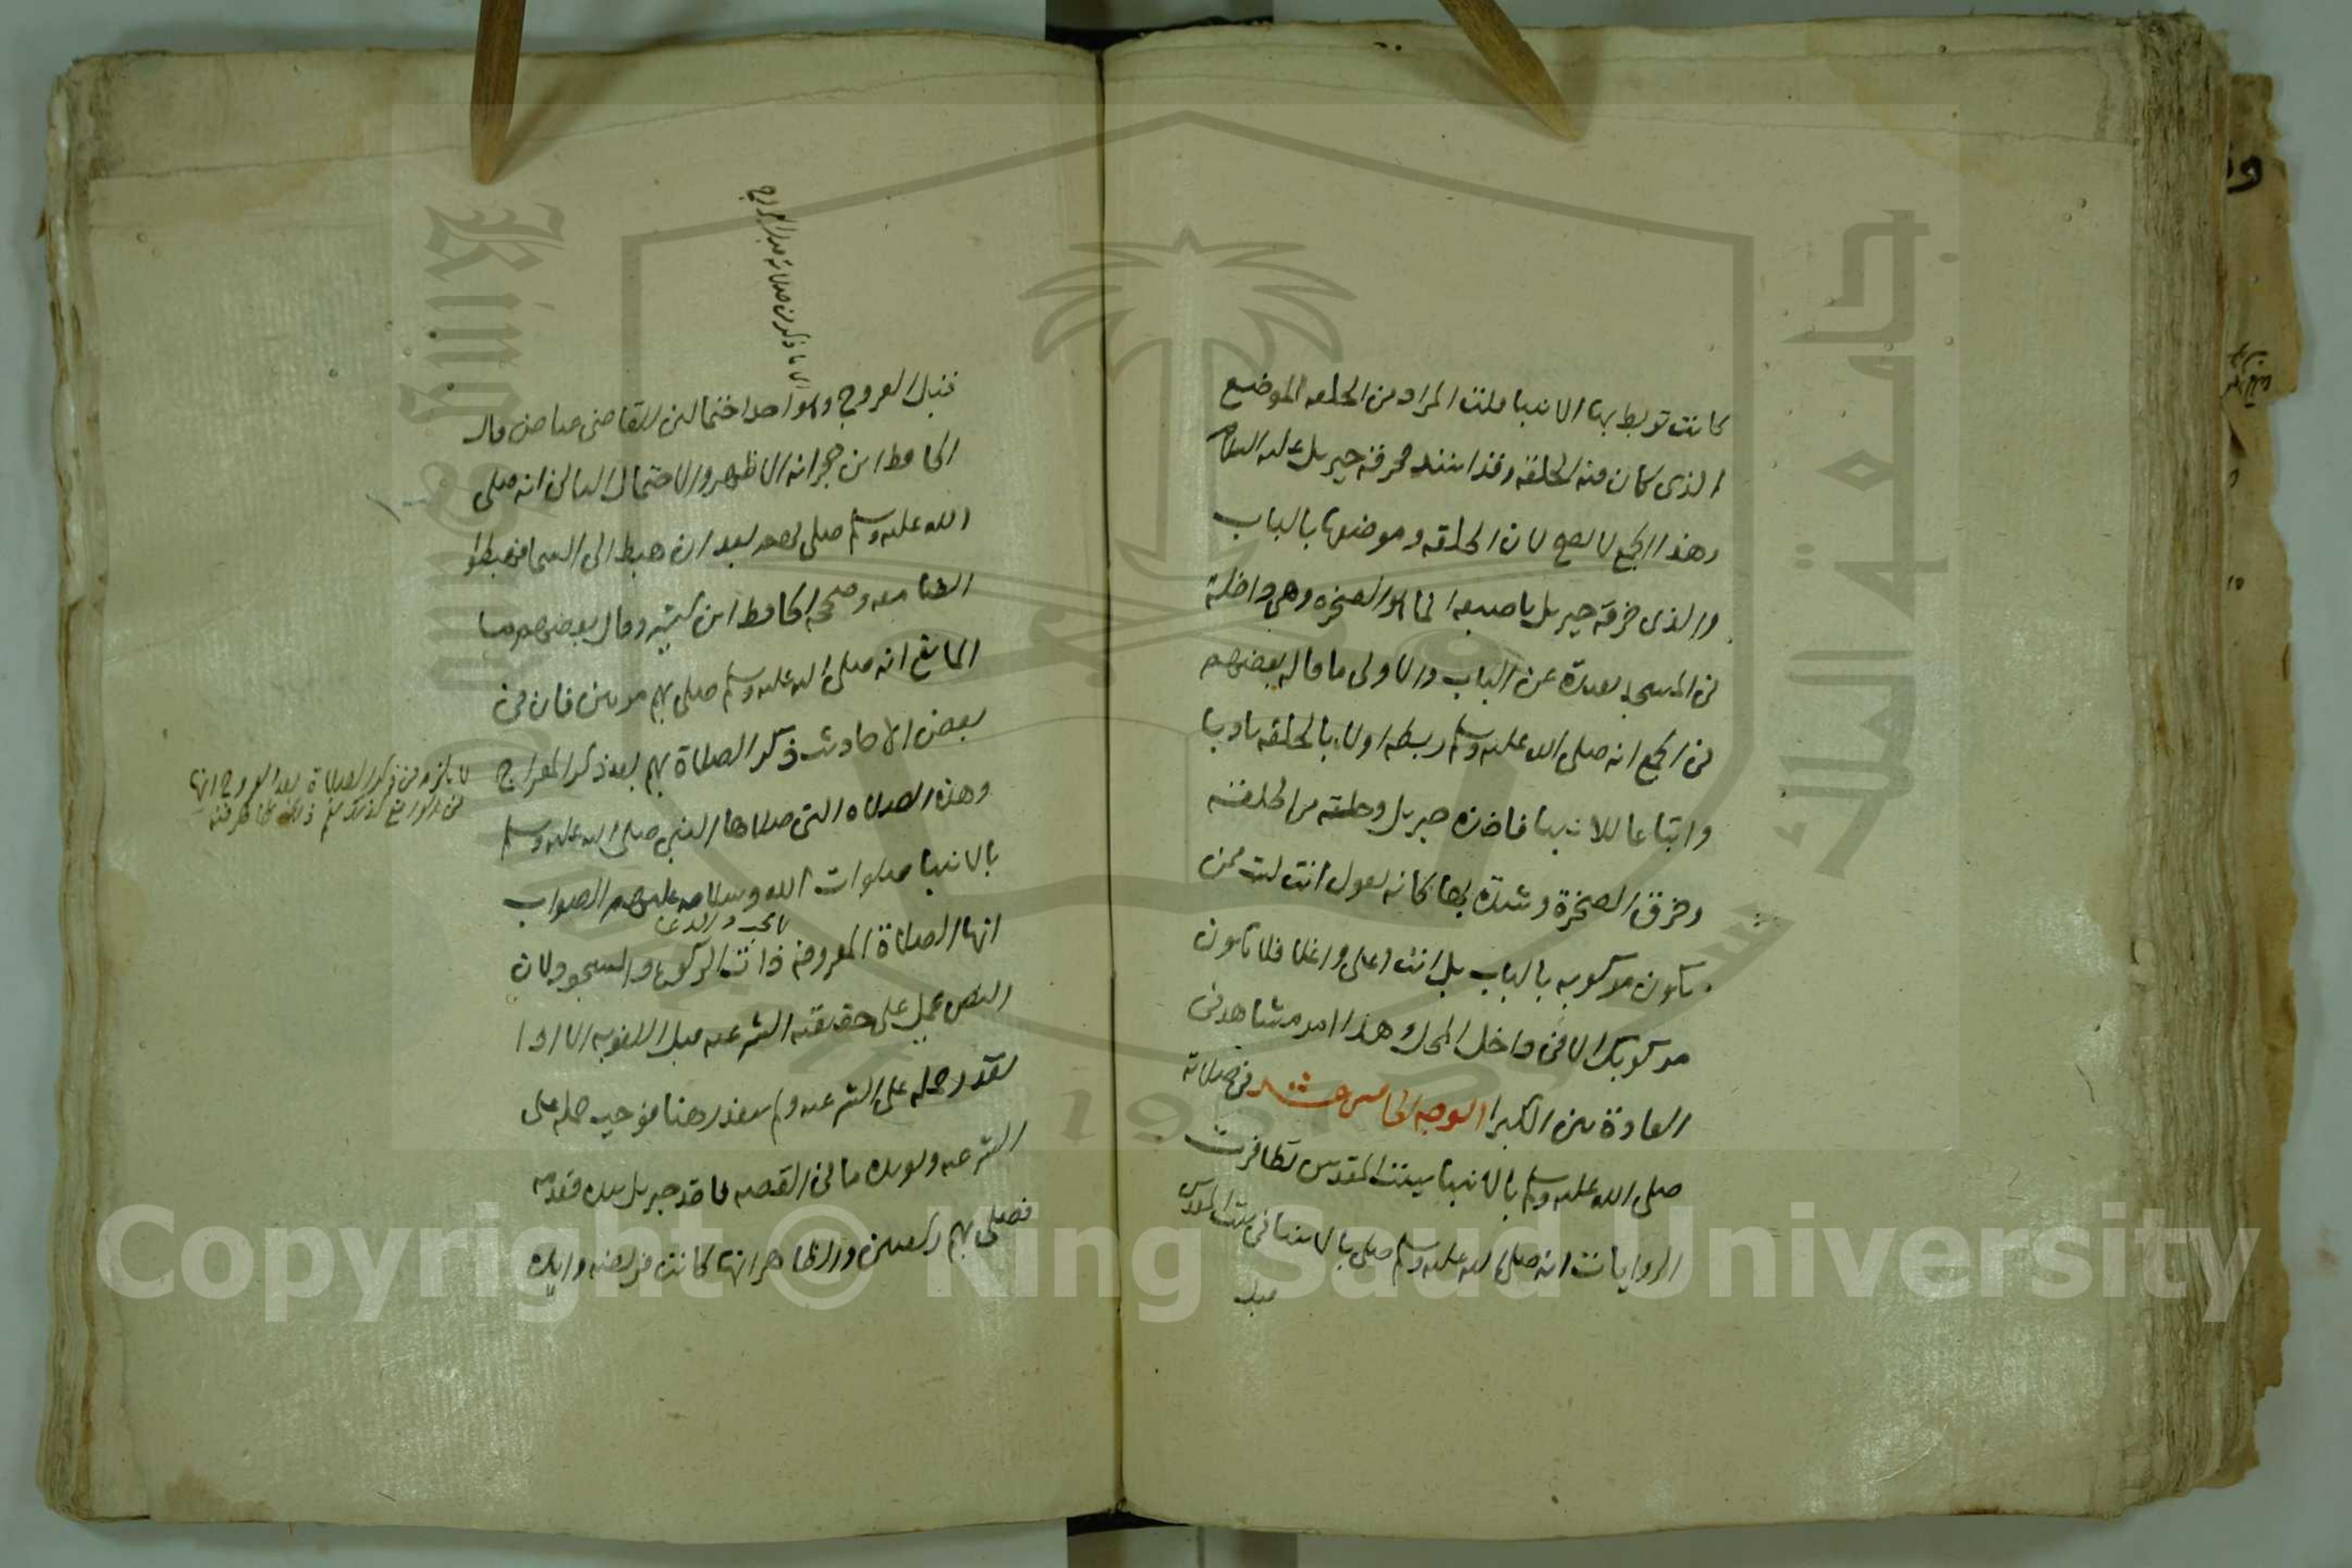 كانت تربط بها الانبيا قلت المراد من الحلقه الموضع
الذي كان فيه الحلقة وقد انسد فخرقه جبريل عليه السلام
وهذا الجمع لا يصح لان الحلقه وموضعها بالباب
والذي خرقه جبريل باصبعه انما هو الصخره وهي داخلة
في المسجد بعيدة عن الباب والاولى ما قاله بعضهم
في الجمع انه صلى الله عليه وسلم ربطه اولا بالحلقه تادبا
واتباعا للانبيا فاخذه جبريل وحله من الحلقة
وخرق الصخرة وشده بها كانه يقول انت لست ممن
يكون مركوبه بالباب بل انت اعلى واغلا فلا يكون
مركوبك الا في داخل المحل وهذا امر مشاهد في
العادة بين الكبرا الوجه الخامس عشر في صلاته
صلى الله عليه وسلم بالانبيا ببيت المقدس تظافرت
الروايات انه صلى الله عليه وسلم صلى بالانبيا في بيت المقدس
قبل
اي ما ذكر من صلاته قبل العروج
قبل العروج وهو احد احتمالين للقاضي عياض قال
الحافظ ابن حجر انه الاظهر والاحتمال الثاني انه صلى
الله عليه وسلم صلى بهم بعد ان هبط الى السما فهبطوا
ايضا معه وصححه الحافظ ابن كثير وقال بعضهم وما
المانع انه صلى الله عليه وسلم صلى بهم مرتين فان في
بعض الاحاديث ذكر الصلاة بهم بعد ذكر المعراج
لا يلزم من ذكر الصلاة بعد العروج انها
في الواقع كذلك
وهذه الصلاه التي صلاها النبي صلى الله عليه وسلم
بالانبيا صلوات الله وسلامه عليهم الصواب
انها الصلاة المعروفه ذات الركوع والسجود لان
النص يحمل على حقيقته الشرعيه قبل اللغويه الا اذا
تعذر حمله على الشرعيه ولم يتعذر هنا فوجب حمله على
الشرعيه ويويده ما في القصه فاخذ جبريل بيده فقدمه
فصلى بهم ركعتين والظاهر انها كانت فريضه وايده
Copyright © King Saud University
King Saud University
جامعة الملك سعود